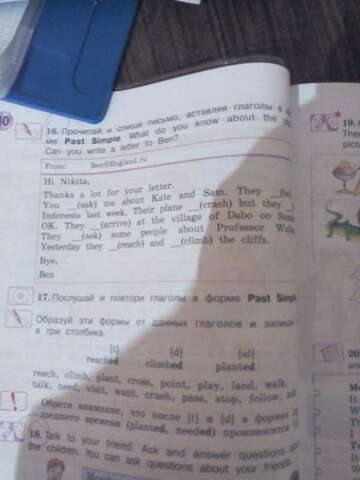 16. Прочитай и спиши письмо, вставляя глаголы в
ме Past Simple. What do you know about the
Can you write a letter to Ben?
From: Ben@England.ru
Hi Nikita,
Thanks a lot for your letter.
You __(ask) me about Kate and Sam. They
Indonesia last week. Their plane __(crash) but they
OK. They __(arrive) at the village of Dabo on
They __(ask) some people about Professor
Yesterday they __(reach) and __(climb) the cliffs.
Bye,
Ben
17. Послушай и повтори глаголы в форме Past
Образуй эти формы от данных глаголов и запиши
в три столбика.
[t] [d] [ɪd]
reached climbed planted
reach, climb, plant, cross, point, play, land, walk,
talk, need, visit, want, crash, pass, stop, follow,
Обрати внимание, что после [t] и [d] в формах
шедшего времени (planted, needed) произносится
18. Talk to your friend. Ask and answer questions
the children. You can ask questions about your friends.
19.
The
pict
20
an